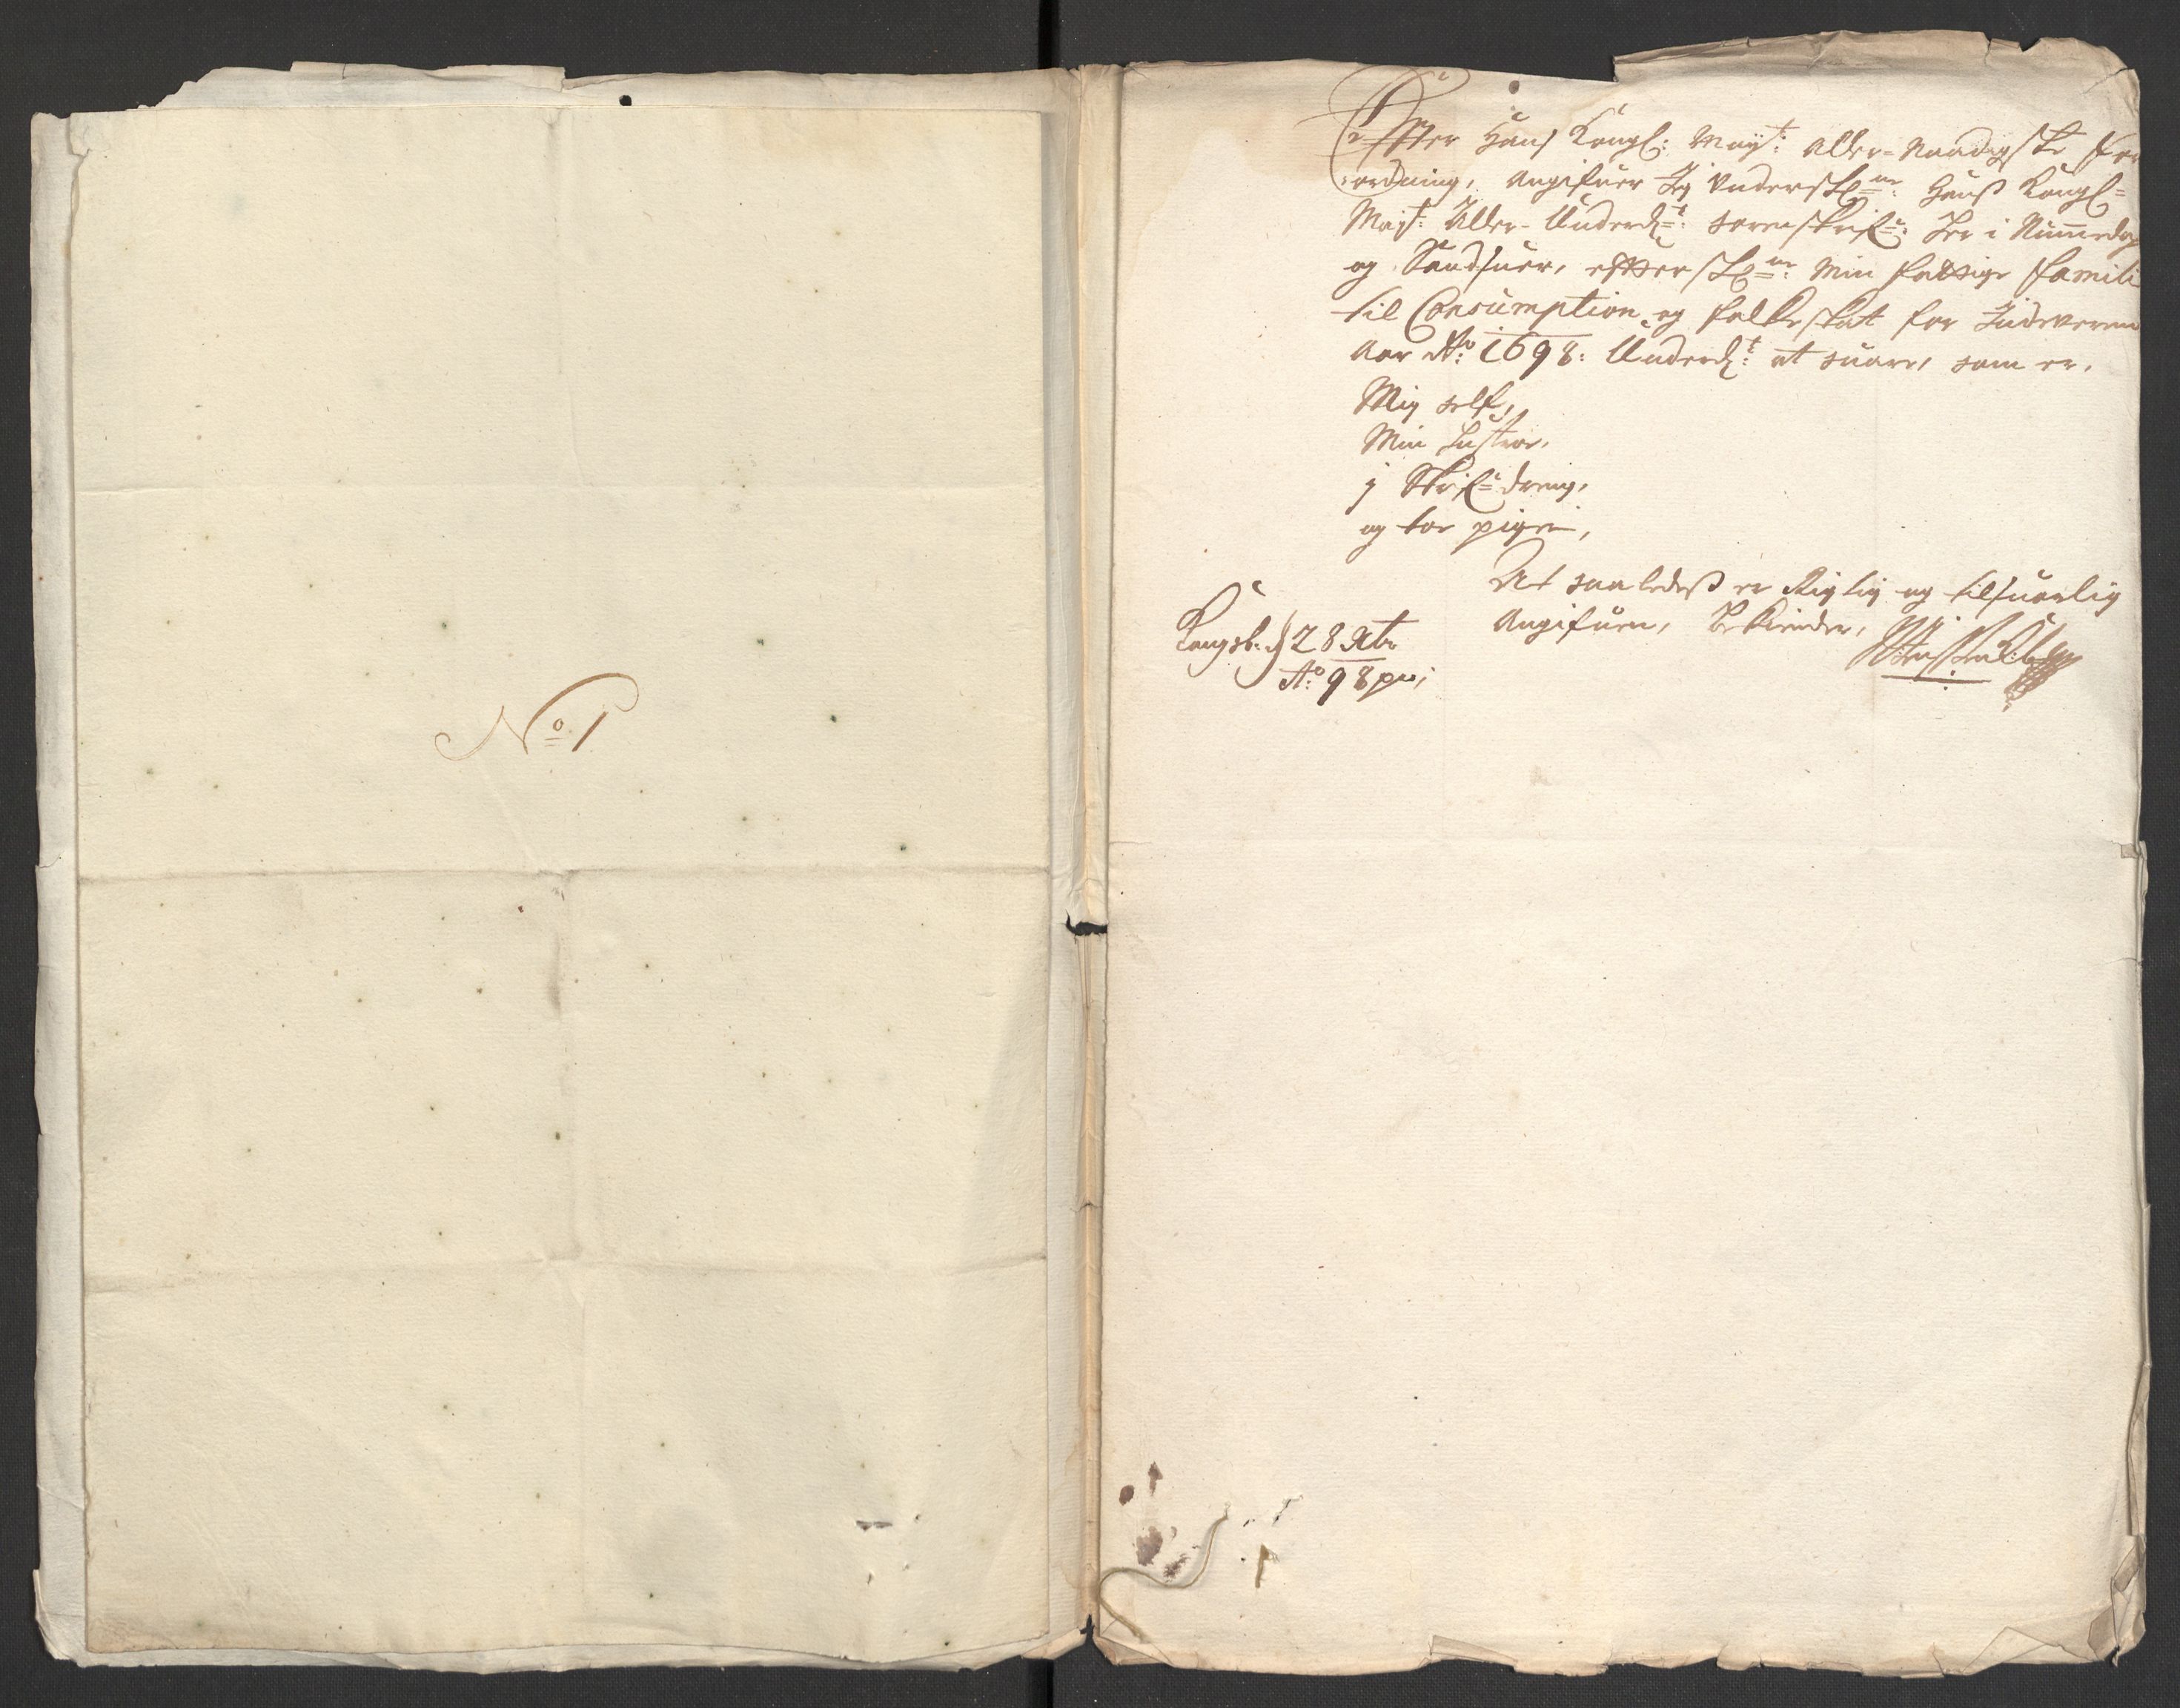 No 1
Effter Hans Kongl: Mayt: Aller-Naadigste for
ordning, Angifuer Jeg Underskne: Hanß Kongl=
Mayt: Aller-Underdt: sorenskrifr: Her i Nummedag
og Sandsuer, effterskne: Min fattige famili
til Consumption og folkeskat for Indeveren
Aar Ao: 1698: Underdt: at suare, som er,
Mig self,
Min Hustroe,
j Skrifr dreng,
og toe piger,
At saaledeß er Rigtig og tilforlig
Angifuen, bekiender,
Kongsb: d 28 Xbr
Ao: 98